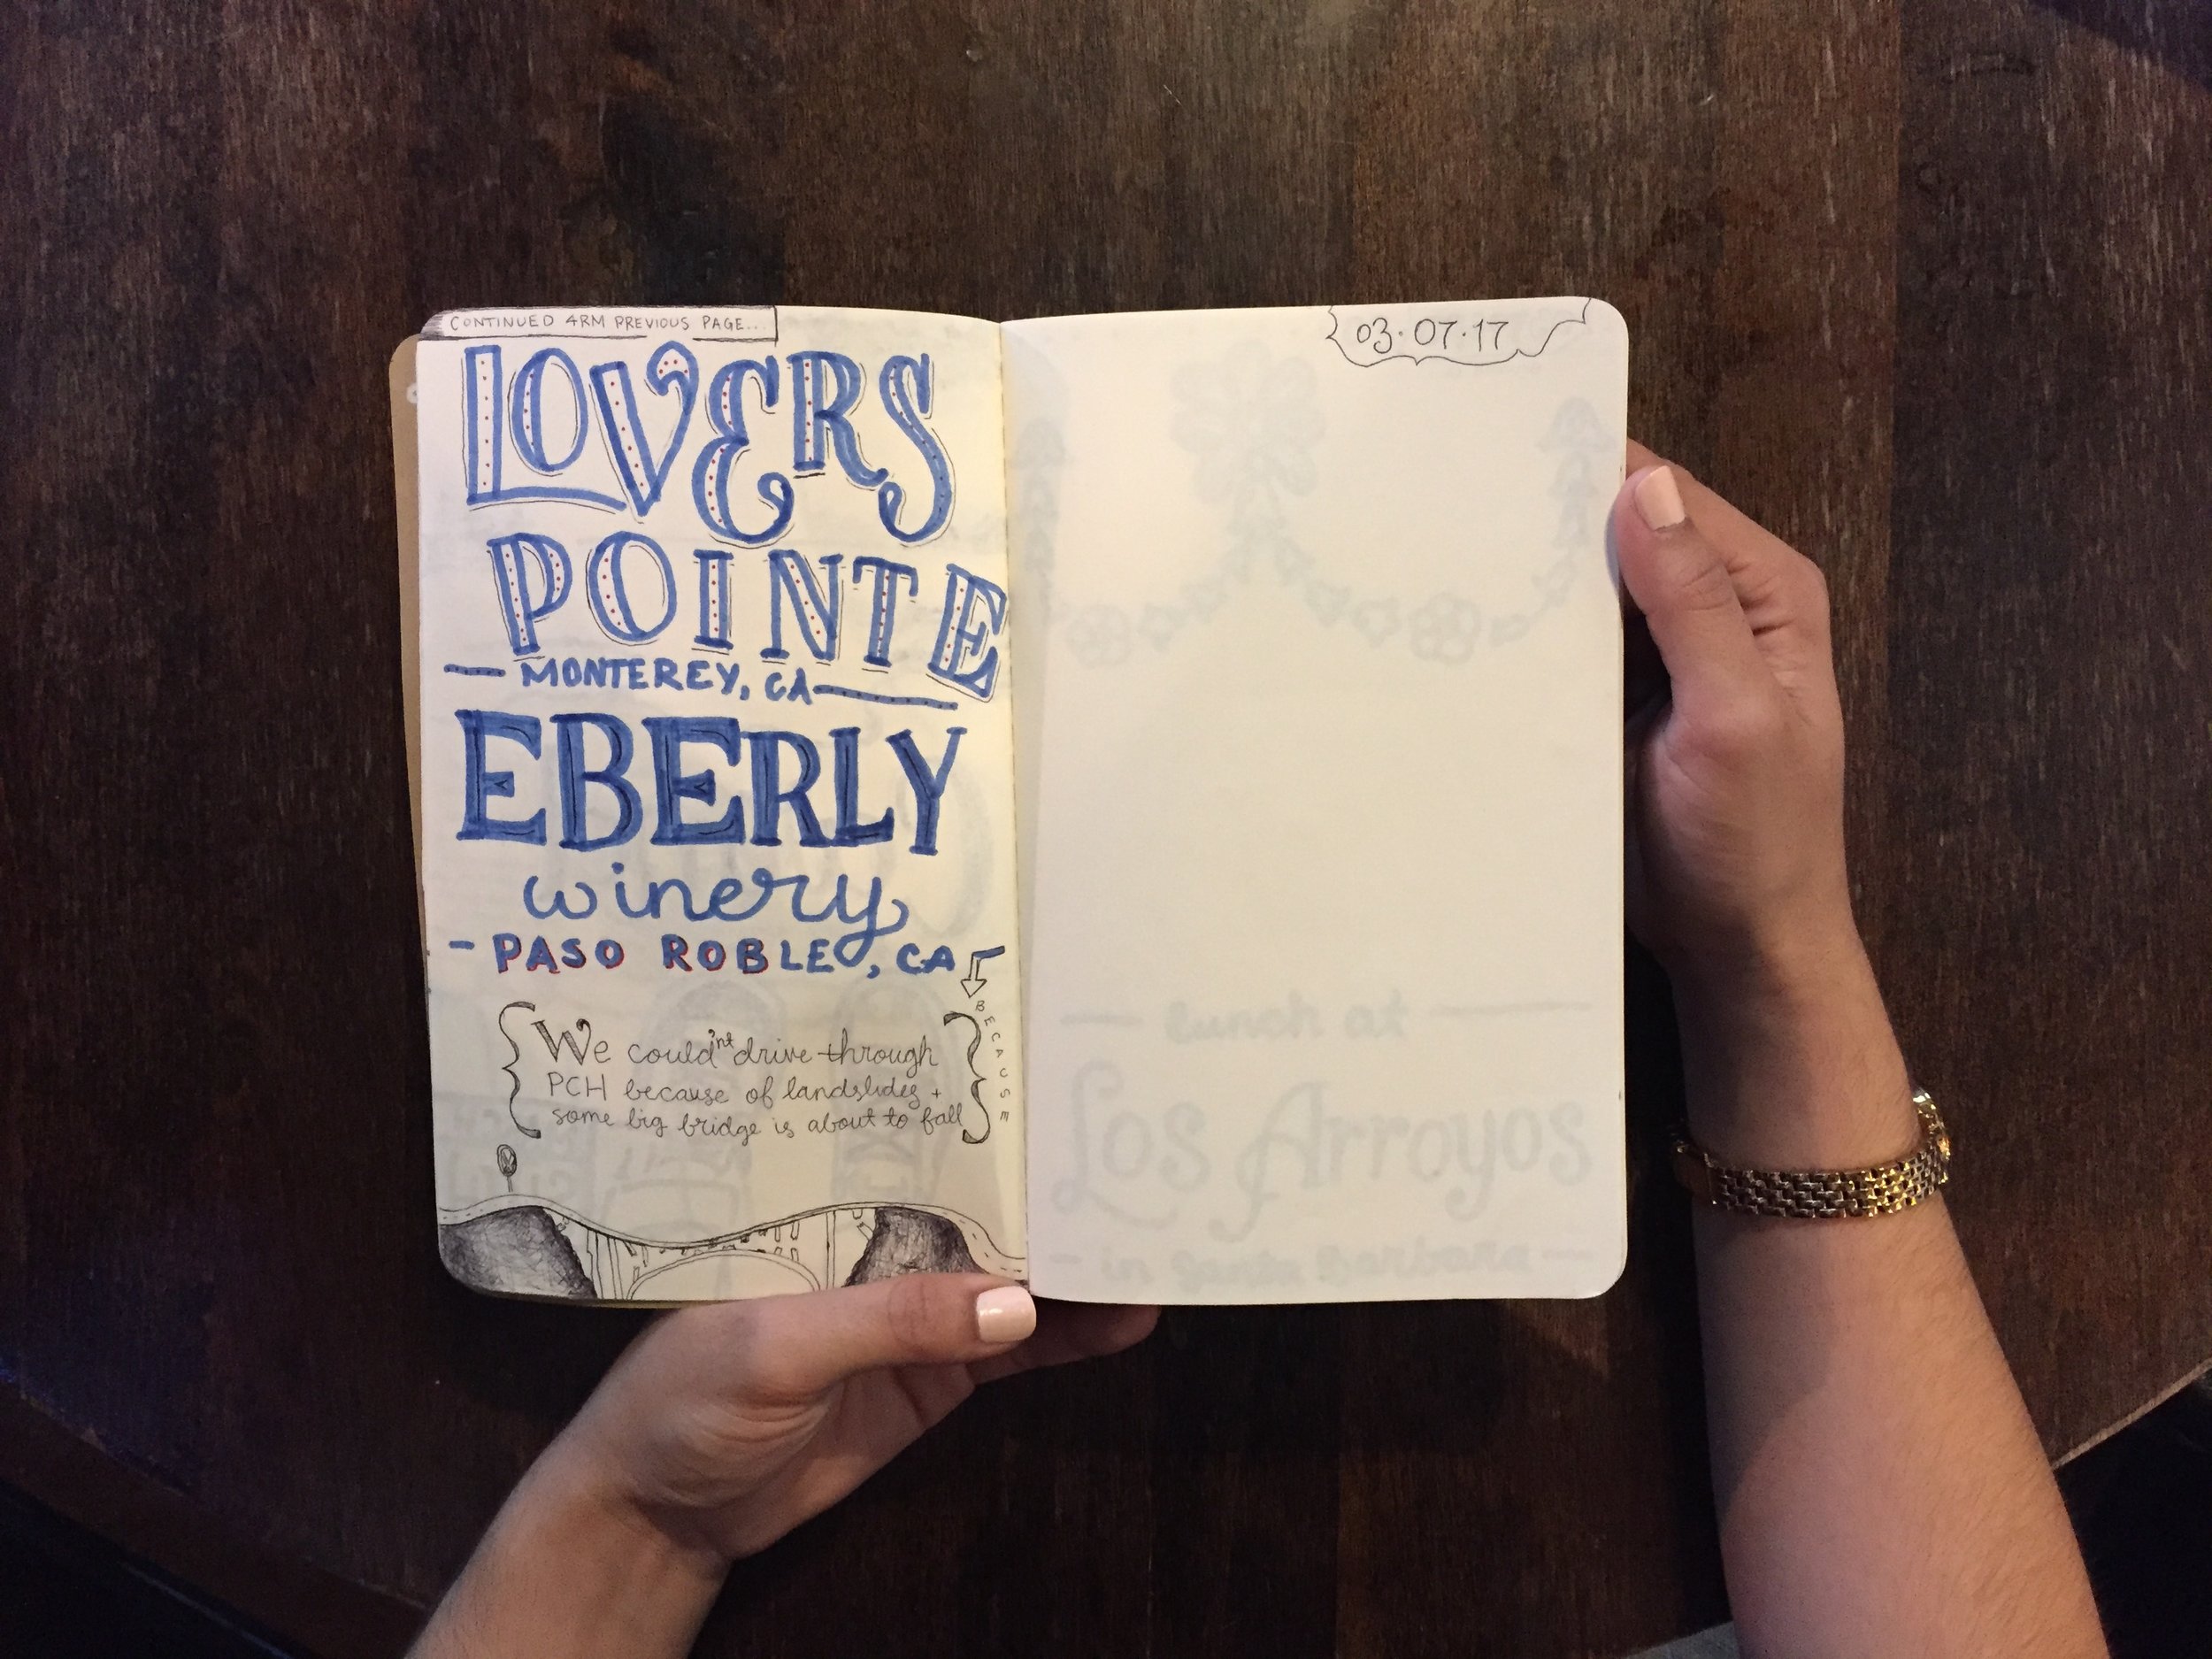 CONTINUED 4RM PREVIOUS PAGE...
LOVERS
POINTE
MONTEREY, CA
EBERLY
winery
- PASO ROBLES, CA
BECAUSE
We could'nt drive through
PCH because of landslides +
some big bridge is about to fall
03.07.17
lunch at
Los Arroyos
- in Santa Barbara -